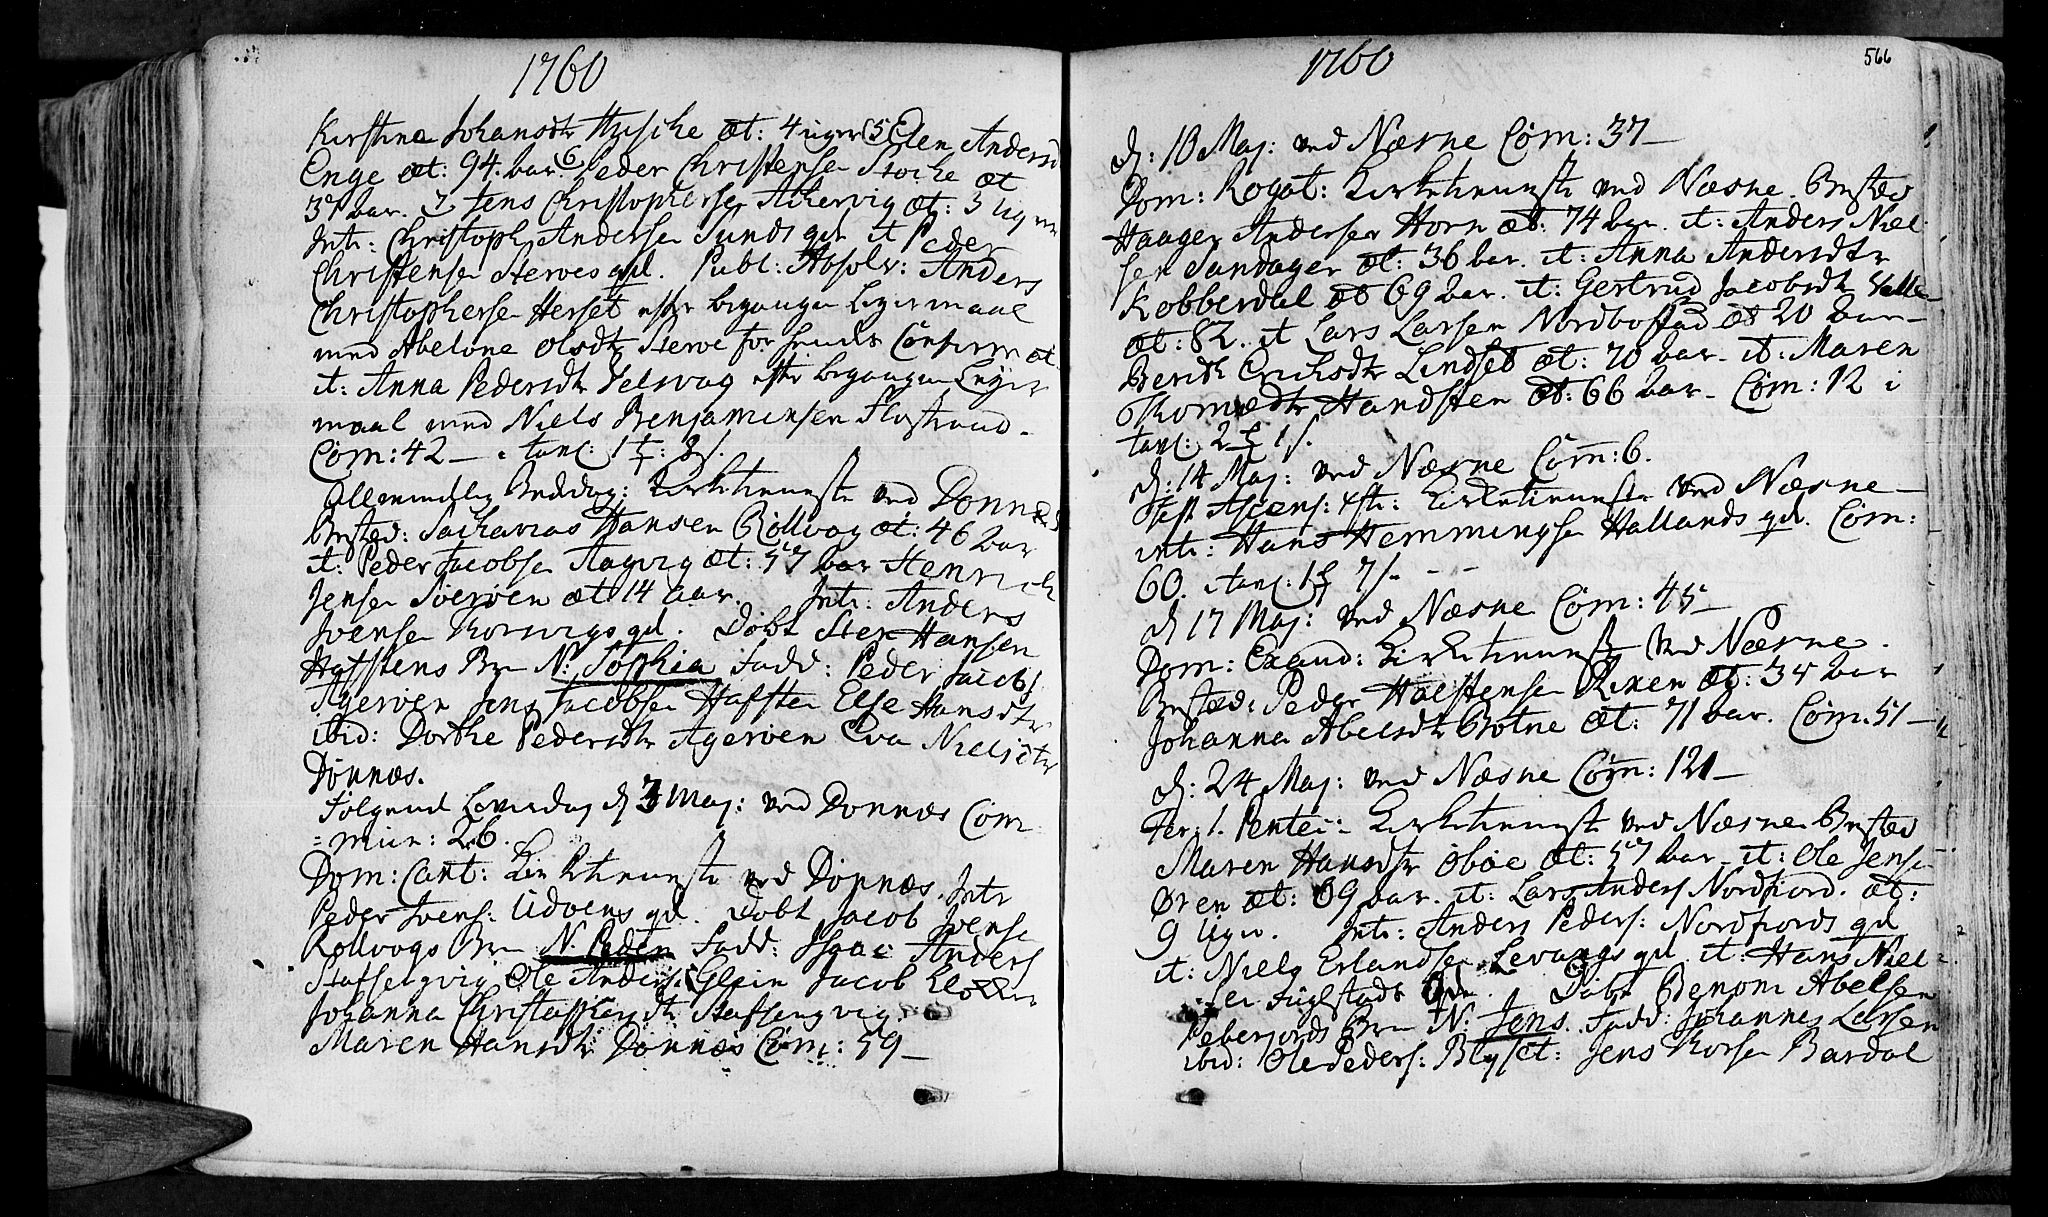 1760
Kirstine Johansdtr Hysche æt: 4 uger 5 Elen Andersd
Enge æt: 94. bar. 6 Peder Christensen Stoche æt
37 bar. 7 Jens Christophersen Achervig æt: 3 Uger
Intr: Christoph Andersen Sunds qd. it Peder
Christensen Sterves qd. Publ: Absolv: Anders
Christophersen Herset efter begangen Leyermaal
med Abelone Olsdtr Sterve for hendes Confirmat
it: Anna Pedersdtr Selsvog efter begangen Leyer
maal med Niels Benjaminsen Flostrand.
Com: 42 — tavl: 1
Allmindelig Beddag: Kirketieniste ved Dønnæs
Bested: Sacharias Hansen Røllvog æt: 46 bar
it: Peder Jacobsen Aagvig æt: 57 bar Henrich
Jensen Sverøen æt 14 aar. Intr: Anders
Ivensen Korsvigs qd. Døbt Sten Hansen
Hafstens Brn N: Sophia Fadd: Peder Jacobs
Agerøen Jens Jacobsen Hafsten Else Hansdtr
ibid: Dorthe Pedersdtr Agerøen Eva Nielsdtr
Dønnæs.
Følgend Løverdag d 3 Maj: ved Dønnæs Com
= mun: 26.
Dom: Cant: Kirketieniste ved Dønnæs. Intr
Peder Ivens: Udøens qd. Døbt Jacob Ivensen
Rollvogs Brn N. Peder Fadd: Isaac Anders
Staffsengvig Ole Anders: Glein Jacob Klokker
Johanna Christophersdtr Staffsengvig
Maren Hansdtr Dønnæs Com: 59 —
1760
566
d: 10 Maj: ved Næsne Com: 37 —
Dom: Rogat: Kirketieniste ved Næsne. Bested
Haagen Andersen Horn æt: 74 bar. it: Anders Niel-
sen Sandager æt: 36 bar. it: Anna Andersdtr
Kobberdal æt 69 bar. it: Gertrud Jacobsdtr Valle
æt: 82. it Lars Larsen Nordbostad æt 20 bar —
Berith Erichsdtr Lindset æt: 70 bar. it: Maren
Thomædtr Handsten æt: 66 bar. Com: 12 i
tavl: 2
d: 14 Maj: ved Næsne Com: 6.
Fest Ascens: Xsti: Kirketieniste ved Næsne —
intr: Hans Hemmingsen Hallands qd. Com:
60. i tavl: 1 7
d 17 Maj: ved Næsne Com: 45 —
Dom: Exaud: Kirketieniste ved Næsne.
Bested: Peder Halstensen Rixen æt: 34 bar
Johanna Abelsdtr Botne æt: 71 bar. Com. 51 —
d: 24 Maj: ved Næsne Com: 121 —
Fer: 1. Pentec: Kirketieniste ved Næsne Bested
Maren Hansdtr Øbøe æt: 57 bar. it: Ole Jensen
Øren æt: 69 bar. it: Lars Anders Nordfiord. æt:
9 Uger. Intr: Anders Peders: Nordfiords qd
it: Niels Erlandsen Levangs qd. it: Hans Niel-
sen Fuglstads qd. Døbt Benoni Abelsen
Peberfiords Brn N: Jens. Fadd: Johannes Larsen
ibid: Ole Peders: Blyset: Jens Korsen Bardal